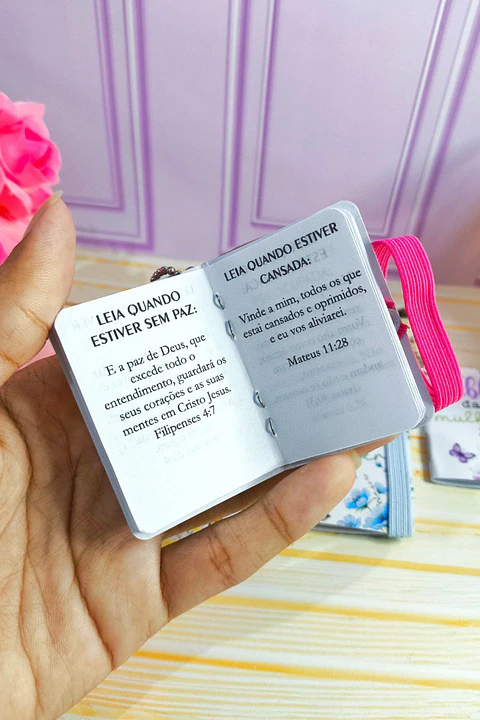 LEIA QUANDO
ESTIVER SEM PAZ:
E a paz de Deus, que
excede todo o
entendimento, guardará os
seus corações e as suas
mentes em Cristo Jesus.
Filipenses 4:7
LEIA QUANDO ESTIVER
CANSADA:
Vinde a mim, todos os que
estai cansados e oprimidos,
e eu vos aliviarei.
Mateus 11:28